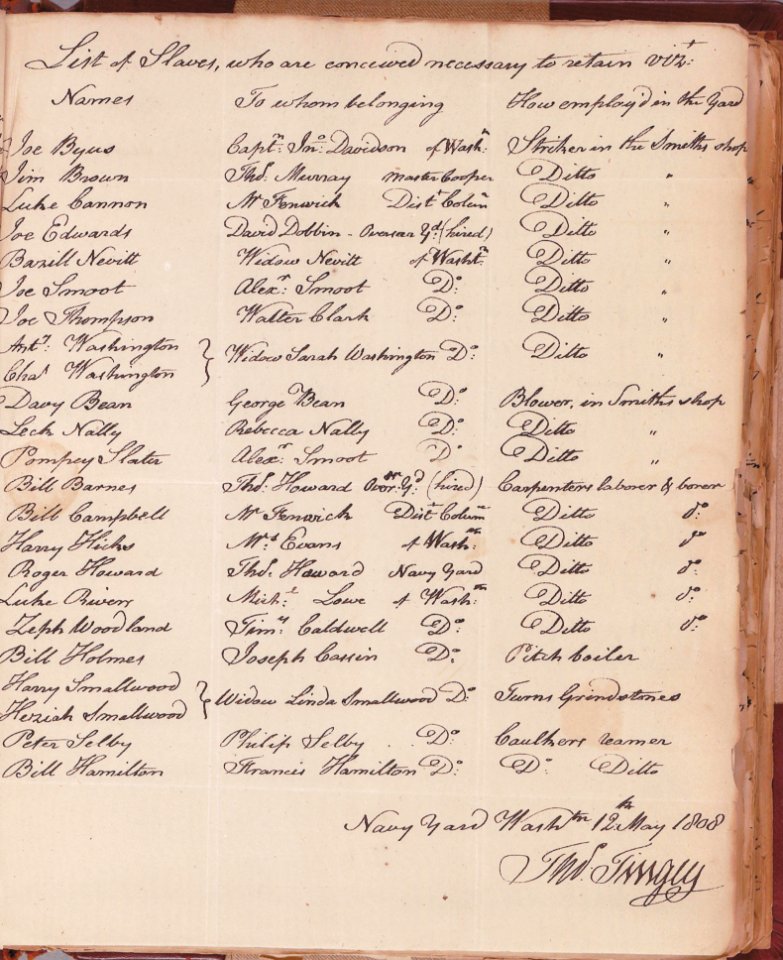 List of Slaves, who are conceived necessary to retain vizt:
Names To whom belonging How employ'd in the Yard
Joe Byus Captn. Jno. Davidson of Washn Striker in the Smiths shop
Jim Brown Thos. Murray master Cooper Ditto "
Luke Cannon Mr Fenwick Dist Colum Ditto "
Joe Edwards David Dobbin - Overseer Yd. (hired) Ditto "
Bazill Nevitt Widow Nevitt of Washtn Ditto "
Joe Smoot Alexr. Smoot Do: Ditto "
Joe Thompson Walter Clark Do: Ditto "
Anty. Washington } Widow Sarah Washington Do: Ditto "
Chas Washington
Davy Bean George Bean Do: Blower, in Smiths shop
Lech Nally Rebecca Nally Do: Ditto "
Pompey Slater Alexr. Smoot Do: Ditto "
Bill Barnes Thos. Howard Oversr. Yd (hired) Carpenters laborer & borer
Bill Campbell Mr Fenwick Dist Colum Ditto do:
Harry Hicks Mrs Evans of Washn: Ditto do
Roger Howard Thos. Howard Navy Yard Ditto do:
Luke Rivers Michl. Lowe of Washtn: Ditto do:
Zeph Woodland Timy Caldwell Do: Ditto do:
Bill Holmes Joseph Cassin Do. Pitch boiler
Harry Smallwood } Widow Linda Smallwood Do: Turns Grindstones
Heziah Smallwood
Peter Selby Philip Selby Do: Caulkers reamer
Bill Hamilton Francis Hamilton Do: Do: Ditto
Navy Yard Washtn 12th May 1808
Thos. Tingey